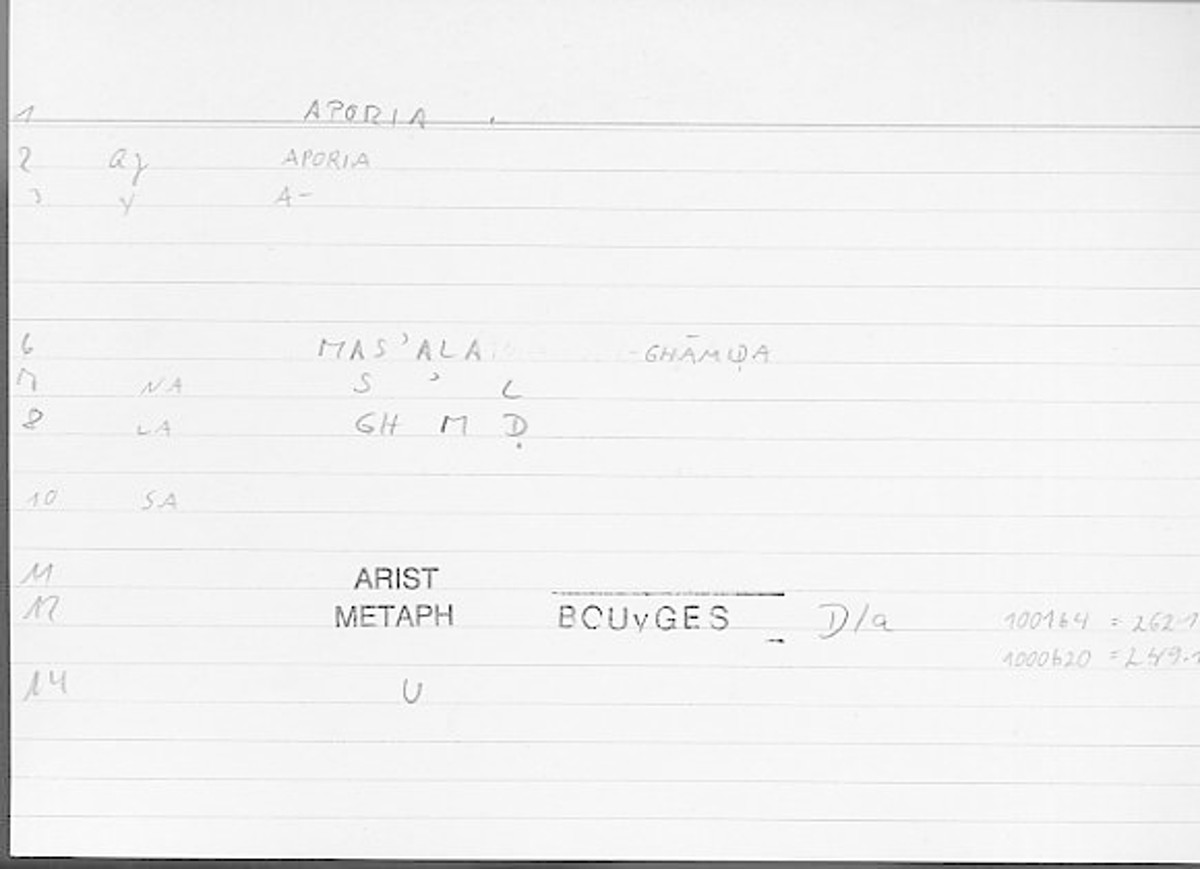 1 APORIA .
2 aj APORIA
3 y A-
6 MAS'ALA GHĀMIḌA
7 NA S ' L
8 LA GH M Ḍ
10 SA
11 ARIST
12 METAPH BOUyGES D/a 1001b4 = 262.1
1000b20 = 249.1
14 U